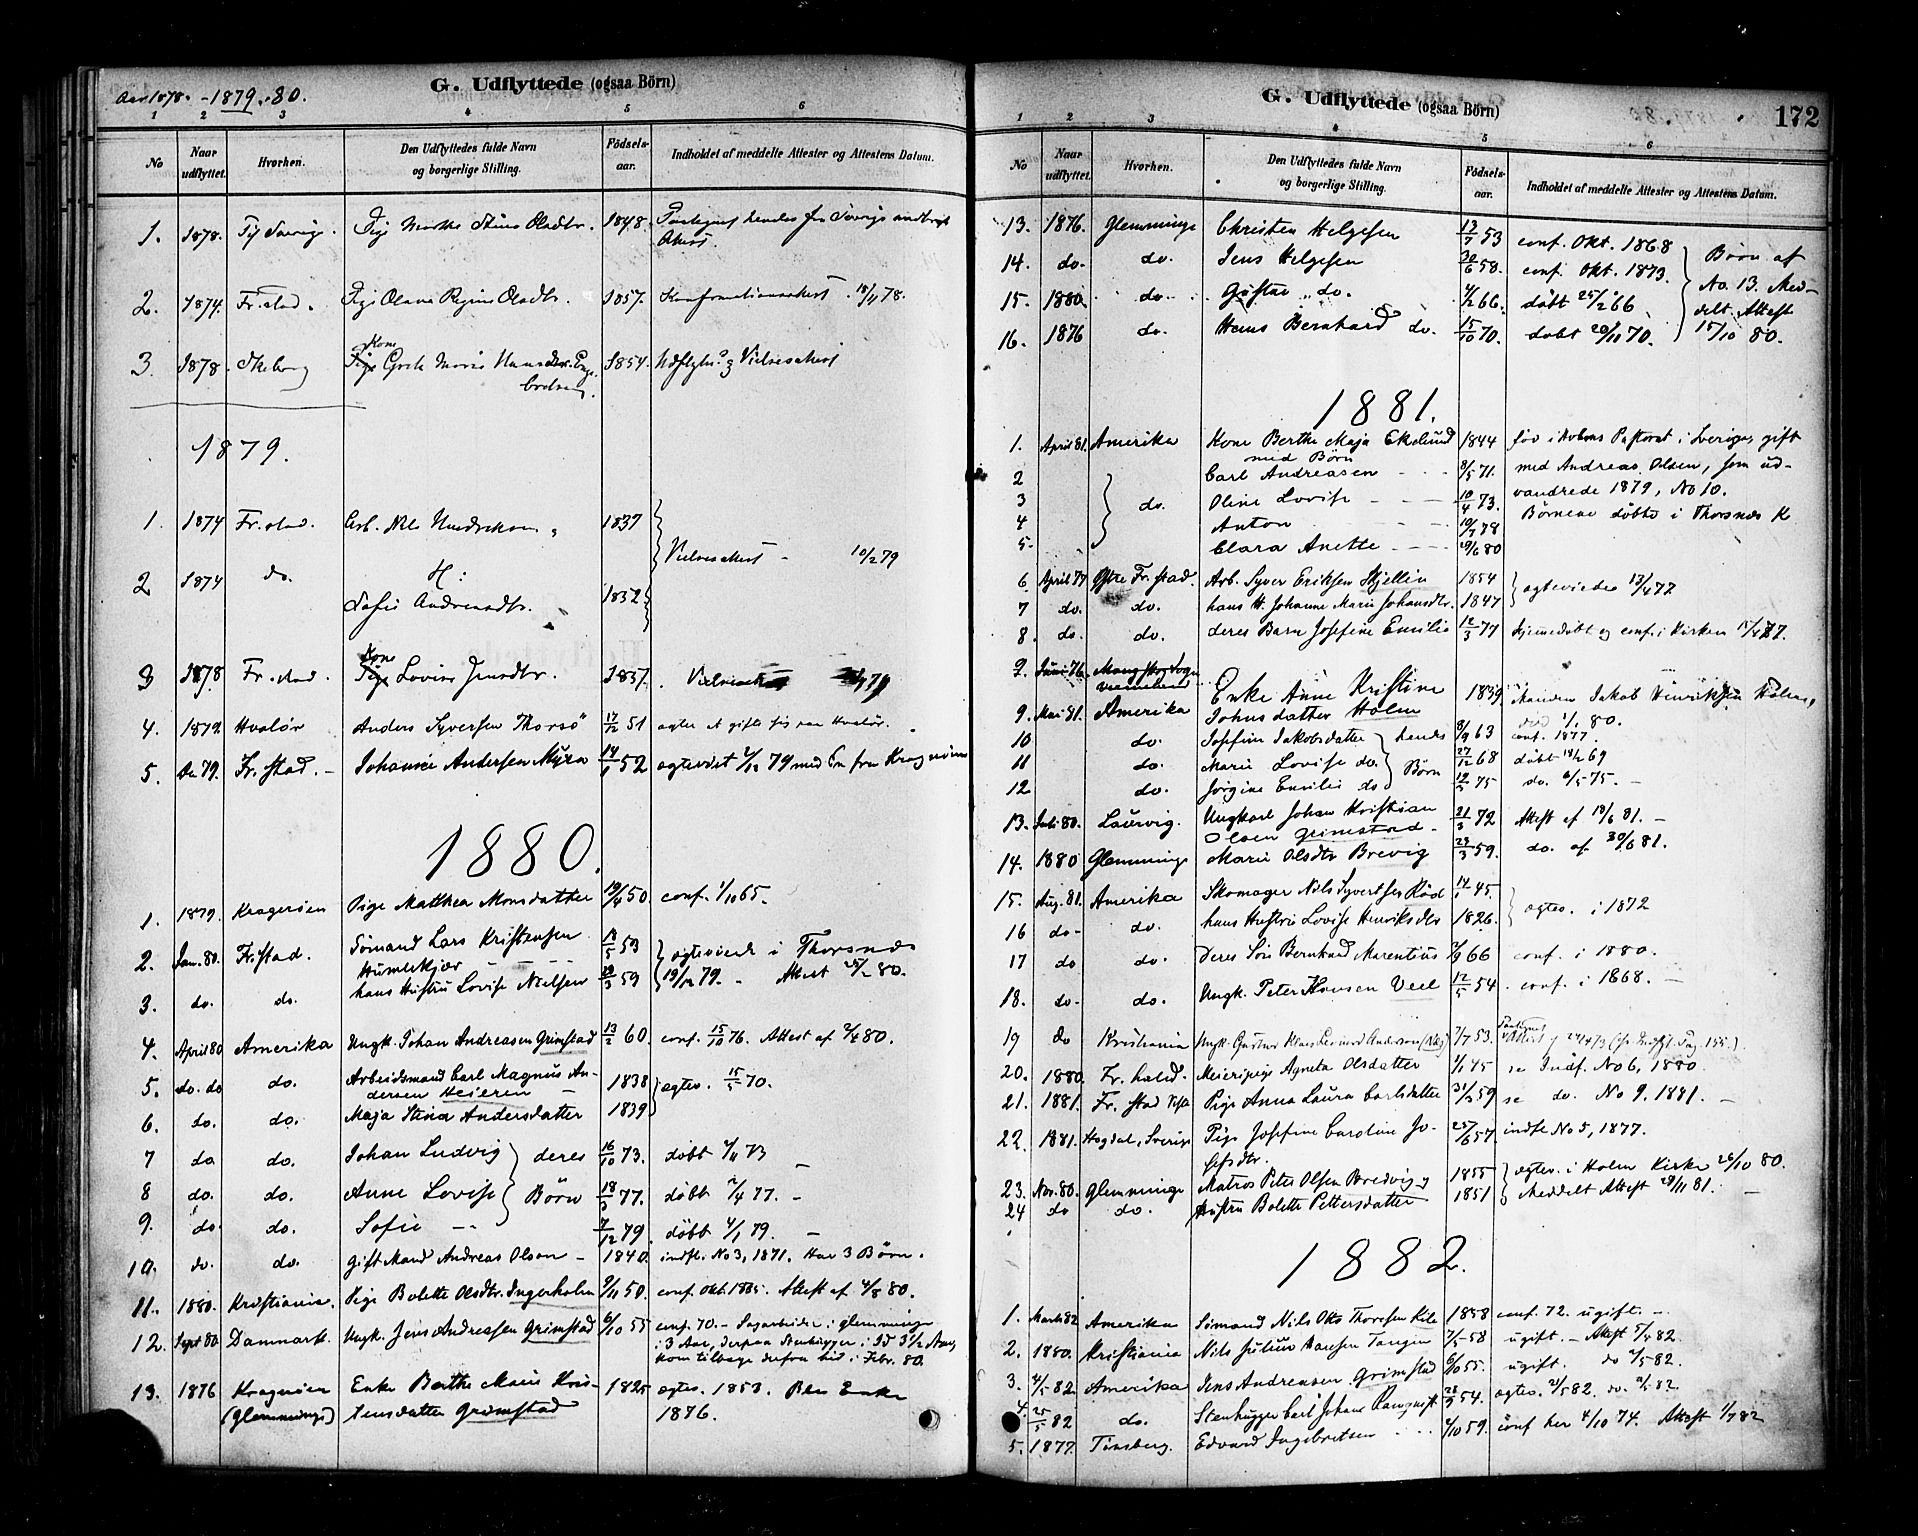 Aar 1878. -1879.-80.
G. Udflyttede (ogsaa Börn)
1 2 3 4 5 6
No
Naar udflyttet.
Hvorhen.
Den Udflyttedes fulde Navn
og borgerlige Stilling.
Födsels-
aar.
Indholdet af meddelte Attester og Attestens Datum.
1. 1878. Til Sverige. Pige Marthe Stine Olsdtr. 1848.
2. 1874. Fr.stad. Pige Olava Regine Olsdtr. 1857. Konfirmationsattest 18/11 78.
Kone
3. 1878. Pige Grete Marie 1854. Vielsesattest
1879.
1. 1874 Fr.stad. Arb. Nils 1837
Vielsesattest - 10/2 79
2 1874 do. H:
Sofie Andreasdtr. 1832
Kone
3 1878 Fr.stad. Pige Lovise Jensdtr. 1837. Vielsesattest 79
4. 1879. Hvalør Anders Syversen Thorsö 17/12 51 agter at gifte sig paa Hvalør.
5. De 79. Fr.stad. - Johannes Andersen Myra 14/1 52 79 med En fra Kragerøen
1880.
1. 1879. Kragerøen Pige Matthea Monsdatter 19/4 50 conf. 1/10 65.
2. Jan. 80. Fr.stad. Sömand Lars Kristensen 13/5 53 ægteviede i Thorsnæs
Humlekjær
3. do. do. hans Hustru Lovise Nielsen 29/3 59 19/12 79. - Attest 25/2 80.
4. April 80 Amerika Ungk. Johan Andreasen Grimstad 13/2 60 conf. 15/10 76. Attest af 2/4 80.
5. do. do do. Arbeidsmand Carl Magnus An-
dersen Heieren 1838 ægtev. 15/5 70.
6. do. do. Maja Stina Andersdatter 1839
7 do do. Johan Ludvig deres 16/10 73. döbt 2/11 73
8 do. do. Anne Lovise Børn 18/3 77. döbt 2/4 77. -
9. do. do. Sofie -- 7/12 79 döbt 4/1 79. -
10. do. do. Gift Mand Andreas Olsen - 1840. indfl. No 3, 1871. Har 3 Børn.
11. 1880. Kristiania. Pige Bolette Olsdtr. Ingerholm 9/11 50. conf. Okt. 1865. Attest af 4/8 80.
12. Sept 80 Danmark. Ungk. Jens Andreasen Grimstad 6/10 55 conf. 70. - Sagarbeider i Glemminge
i 3 Aar, derpaa Stenhugger i Id 3 1/2 Aar,
kom tilbage derfra hid i Febr. 80.
13. 1876 Kragerøen Enke Berthe Marie Kris- 1825 ægtev. 1853. Blev Enke
(Glemminge) tensdatter Grimstad 1876.
G. Udflyttede (ogsaa Börn)
172
1 2 3 4 5 6
No
Naar udflyttet.
Hvorhen.
Den Udflyttedes fulde Navn
og borgerlige Stilling.
Födsels-
aar.
Indholdet af meddelte Attester og Attestens Datum.
13. 1876. Glemminge Christen Helgesen 13/7 53 conf. Okt. 1868 Børn af
14. do. do. Jens Helgesen 30/6 58. conf. Okt. 1873. No. 13. Med-
15. 1880 do. Gustav do. 4/12 66. döbt 25/2 66 delt Attest
16. 1876 do. Hans Bernhard do. 15/10 70. döbt 20/11 70. 15/10 80.
1881.
1. April 81. Amerika Kone Berthe Maja Ekelund 1844 föd i Pastorat i Sverige, gift
med Børn
2 Carl Andreasen - - - 8/5 71. med Andreas Olsen, som ud-
3 do. Oline Lovise - - - 10/4 73. vandrede 1879, No 10.
4 Anton - - - 10/7 78 Børnene döbte i Thorsnæs K
5. Clara Anette - - - 29/6 80
6 April 77 Østre Fr.stad. Arb. Syver Eriksen Kjellin 1854 ægteviede 13/4 77
7 do. do. hans H. Johanne Marie Johansdtr. 1847
8. do. do. deres Barn Josefine Emilie 12/3 77 hjemmedöbt og conf. i Kirken
9. Juni 76.
9. Mai 81. Amerika Enke Anne Kristine
Johnsdatter Holm 1839 Manden Jakob Henriksen Holm,
död 1/1 80.
10 do. Josefine Jakobsdatter hendes 8/9 63 conf. 1877.
11 do. Marie Lovise do. Børn 27/12 68 döbt 14/2 69
12 do. Jörgine Emilie do 19/3 75 do. 6/5 75. -
13. Juli 80. Laurvig. Ungkarl Johan Kristian
Olsen Grimstad. 21/3 72 Attest af 18/6 81. -
14. 1880 Glemminge Marie Olsdtr Brevig 23/3 59. do. af 30/6 81.
15. Aug. 81. Amerika Skomager Nils Syvertsen Röd 14/1 45 ægtev. i 1872
16 do- do. hans Hustru Lovise Henriksdtr 1826.
17 do do. Deres Sön Bernhard Marentius 2/9 66 conf. i 1880.
18. do- do. Ungk. Peter Hansen Veel 12/5 54. conf. i 1868. -
19 do Kristiania Ungk. Gustav Andersen (Næs) 7/7 53.
20. 1880. Fr. hald. Meieripige Agneta Olsdatter 1/1 45 se Indf. No 6, 1880.
21. 1881. Fr. stad Pige Anna Laura Carlsdatter 31/2 59 se do. No 9. 1881. -
22. 1881. Hogdal, Sverige Pige Josefine Caroline Jo-
sefsdtr. 25/6 57 indfl No 5, 1877.
23. Nov. 80. Glemminge Matros Peter Olsen Bredvig og 1855 ægtev. i Holm Kirke 26/10 80.
24 do do. Hustru Bolette Pettersdatter 1851 Meddelt Attest 28/11 81.
1882.
1. Marts 82 Amerika Sömand Nils Otto Thoresen Kile 1858 conf. 72. ugift. -
2. 1880. Kristiania Nils Julius Hansen Tangen 7/5 58 ugift. - Attest 5/4 82.
3. 4/5 82 Amerika Jens Andreasen Grimstad 6/10 55. ugift. do 2/5 82.
4. 25/5 82 do. Stenhugger Carl Johan 28/9 54. ægtev. 2/5 82. do. 2/5 82
5. 1877. Tönsberg. Edvard Ingebretsen 4/10 59. conf her 4/10 74. Attest 1/7 82